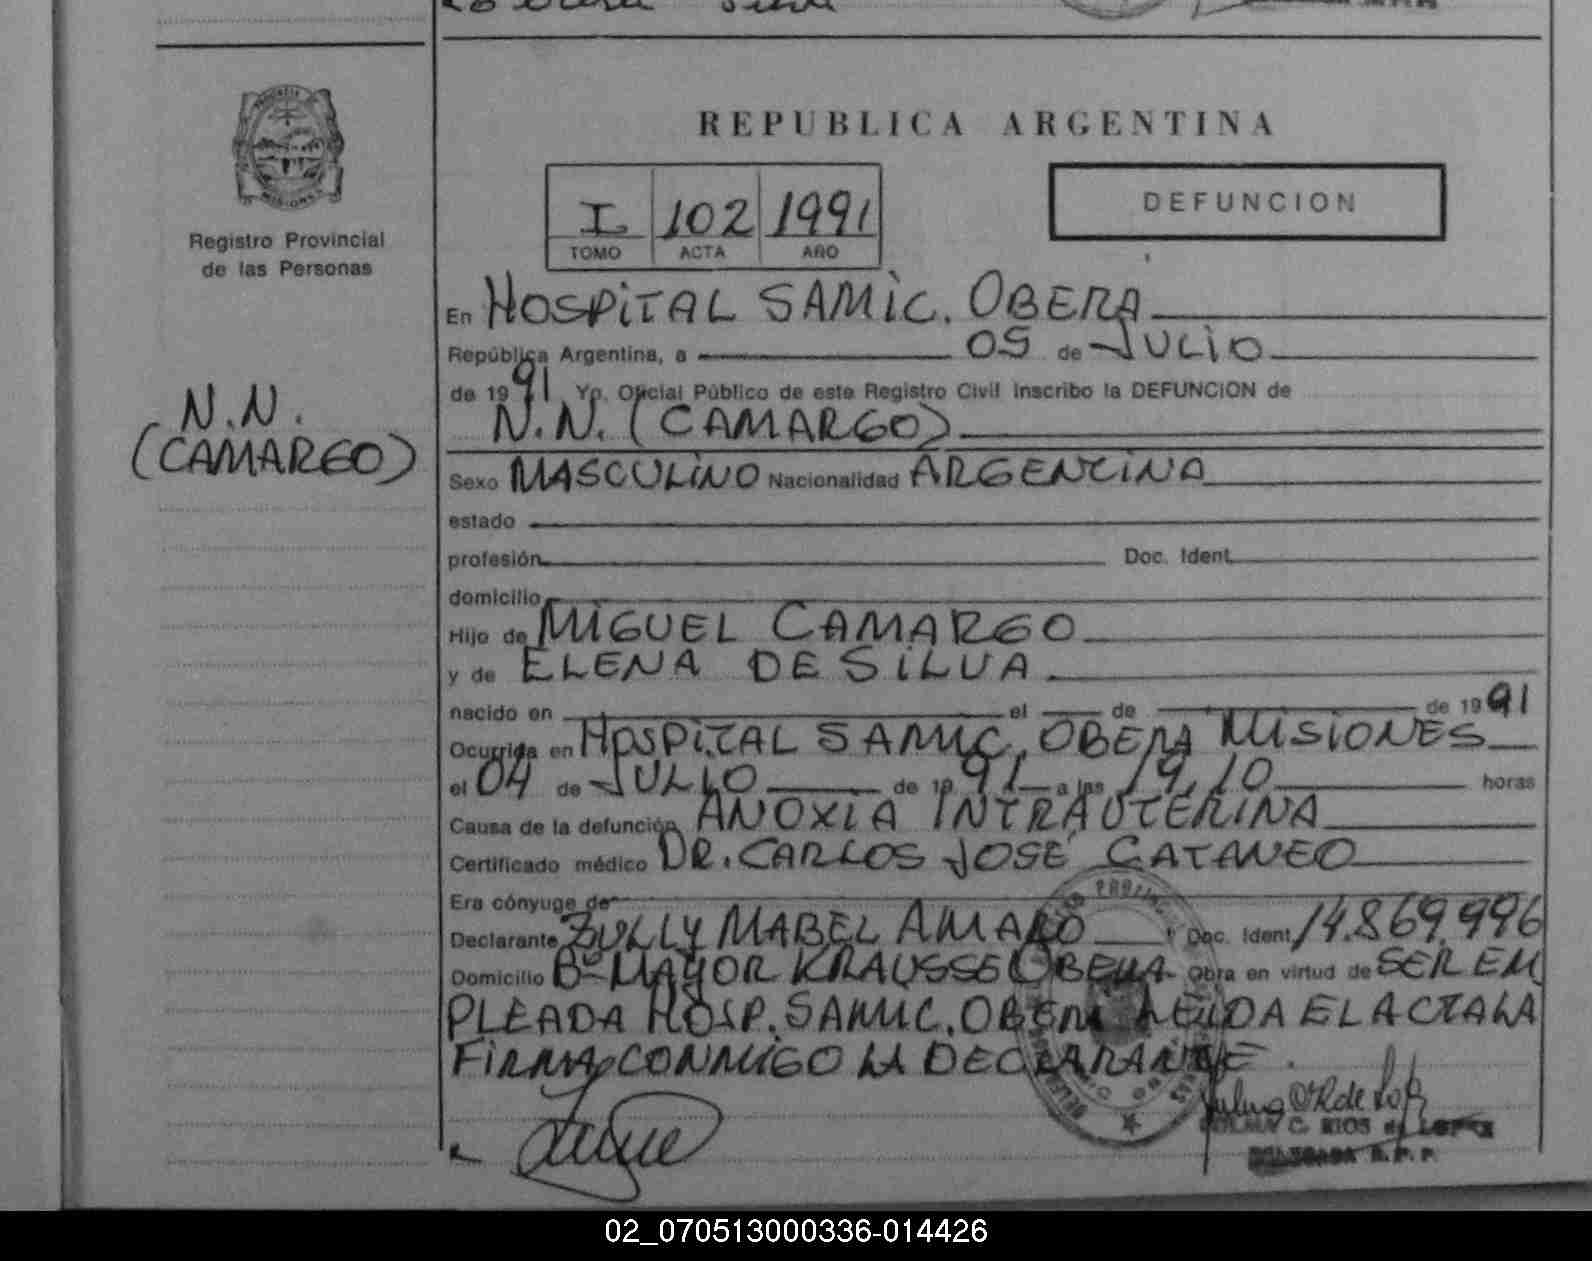 PROVINCIA
MISIONES
Registro Provincial
de las Personas
N.N.
(CAMARGO)
REPUBLICA ARGENTINA
I 102 1991
TOMO ACTA AÑO
DEFUNCION
En HOSPITAL SAMIC. OBERA
República Argentina, a 05 de JULIO
de 1991 Yo. Oficial Público de este Registro Civil inscribo la DEFUNCION de
N.N. (CAMARGO)
Sexo MASCULINO Nacionalidad ARGENTINA
estado
profesión Doc. Ident.
domicilio
Hijo de MIGUEL CAMARGO
y de ELENA DE SILVA
nacido en el de de 1991
Ocurrida en HOSPITAL SAMIC. OBERA MISIONES
el 04 de JULIO de 1991 a las 19,10 horas
Causa de la defunción ANOXIA INTRAUTERINA
Certificado médico DR. CARLOS JOSÉ CATANEO
Era cónyuge de
Declarante ZULLY MABEL AMARO Doc. Ident. 14.869.996
Domicilio Bº MAYOR KRAUSSE OBERA Obra en virtud de SER EM
PLEADA HOSP. SAMIC. OBERA LEIDA EL ACTA LA
FIRMA CONMIGO LA DECLARANTE.
C. RIOS de LOPEZ
DELEGADA R.P.P.
02_070513000336-014426